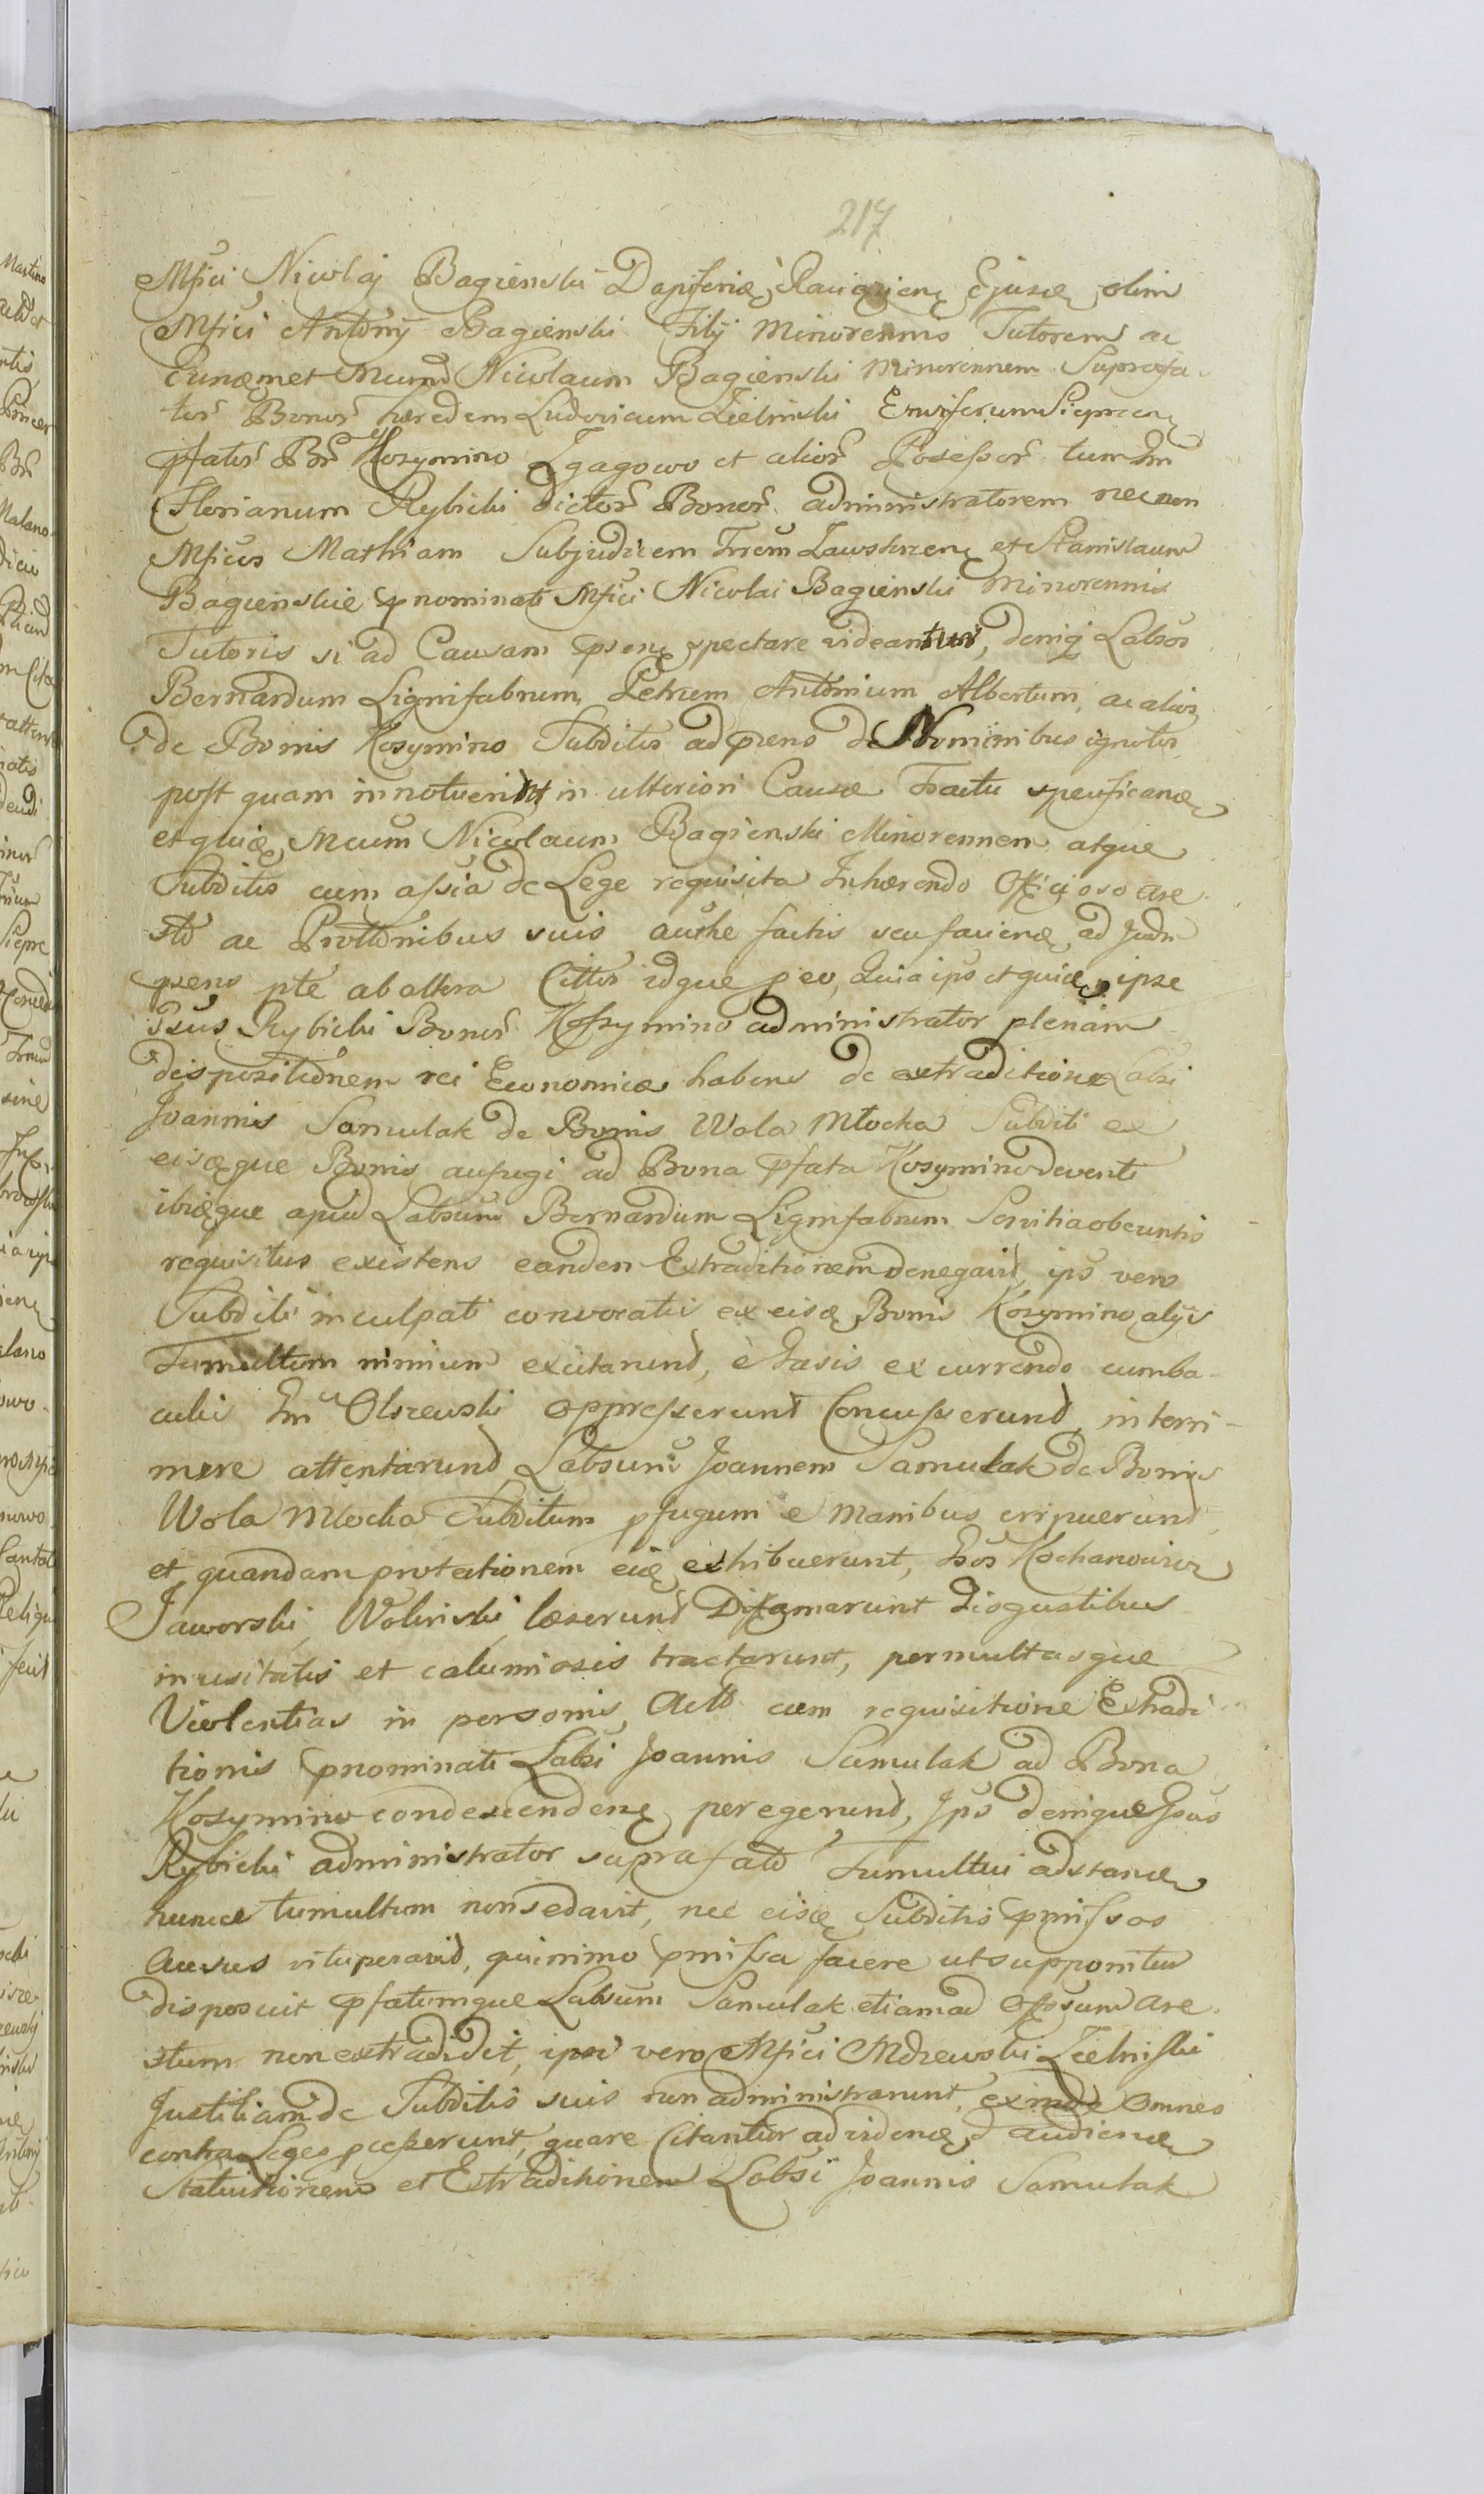 217
Mfici Nicolaj Bagienski Dapiferidæ Raciązien Ejusdę olim
Mfici Antonij Bagienski Filij Minorennis Tutorem ac
Eundemet Mcum Nicolaum Bagienski Minorennem Suprafa-
tor Bonor hæredem Ludovicum Zielinski Ensiferum Sieprcen
pfator Br Kosymino Zgagowo et alior Possessor tum Gm
Florianum Rybicki dictor Bonor administratorem nec non
Mficos Mathiam Subjudicem Trem Zawskrzen et Stanislaum
Bagienskie pnominati Mfici Nicolai Bagienski Minorennis
Tutoris si ad Causam psen spectare videantur, deniq Labos
Bernardum Lignifabrum, Petrum Antonium Albertum, ac alios
de Bonis Kosymino Subditos ad præns de Nominibus ignotos
post quam innotuerint in ulteriori Causæ Tractu specificand
et quid Mcum Nicolaum Bagienski Minorennem atque
Subditos cum assia de Lege requisita Inhærendo Officioso are-
sto ac Prottonibus suis authe factis seu faciend ad Judm
præns pte ab altera Cittos idque p eo, Quia ips et quid ipse
Gsus Rybicki Bonor Kossymino administrator plenam
dispositionem rei Economicæ habens de extraditione Labsi
Joannis Samulak de Bonis Wola Młocka Subditi ex
eisdque Bonis aufugi ad Bona pfata Kosymino deventi
ibidque apud Labsum Bernardum Lignifabrum Servitia obeuntis
requisitus existens eandem Extraditionem denegavit, ips vero
Subditi inculpati convocatis ex eisd Bonis Kosymino alijs
Tumultum nimium excitarunt, è Casis excurrendo cum ba-
culis Gm Olszewski oppresserunt Concusserunt, interi-
mere attentarunt Labsum Joannem Samulak de Bonis
Wola Młocka Subditum pfugum e Manibus erripuerunt
et quandam protectionem eid exhibuerunt, Gsos Kochanowicz
Jaworski, Wolinski læserunt Diffamarunt Disgustibus
inusitatis et calumiosis tractarunt, permultasque
Violentias in personis Acto cum requisitione Extradi-
tionis pnominati Labsi Joannis Samulak ad Bona
Kosymino condescenden peregerunt, Ips denique Gsus
Rybicki administrator suprafato Tumultui adstand
hunce tumultum non sedavit, nec eisd Subditis pmissos
Ausus vituperavit, quinimo pmissa facere ut supponitur
disposuit pfatumque Labsum Samulak etiam ad Offosum are-
stum non extradidit, ipsi vero Mfici Mdzewski Zielinski
Justitiam de Subditis suis non administrarunt, exinde omnes
contra Leges pcesserunt, quare Citantur ad vidend d audiend
Statuitionem et Extraditionem Labsi Joannis Samulak